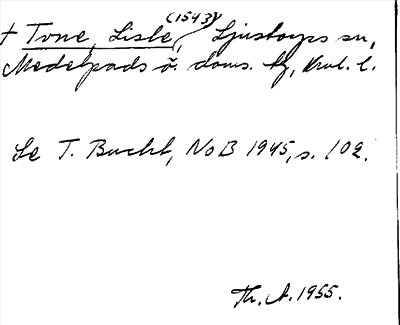 † Tvne, Lisle (1543), Ljustorps sn,
Medelpads ö. doms. tg, Vnl. l.
Se T. Bucht, NoB 1945, s. 102.
Th. A. 1955.